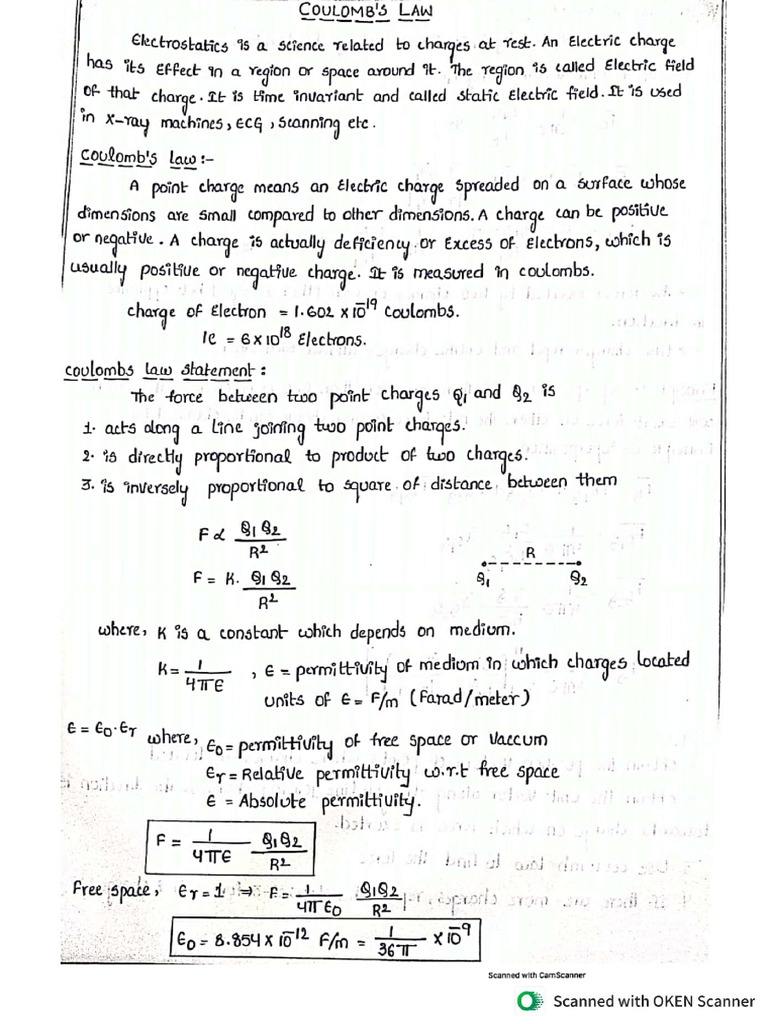 COULOMB'S LAW
Electrostatics is a science related to charges at rest. An Electric charge
has its Effect in a region or space around it. The region is called Electric field
of that charge. It is time invariant and called static Electric field. It is used
in X-ray machines, ECG, scanning etc.
Coulomb's Law:-
A point charge means an Electric charge spreaded on a surface whose
dimensions are small compared to other dimensions. A charge can be positive
or negative. A charge is actually deficiency or Excess of Electrons, which is
usually positive or negative charge. It is measured in coulombs.
charge of Electron = 1.602 × 10⁻¹⁹ Coulombs.
1c = 6×10¹⁸ Electrons.
coulombs Law statement:
The force between two point charges Q₁ and Q₂ is
1. acts along a Line joining two point charges.
2. is directly proportional to product of two charges.
3. is inversely proportional to square of distance between them
F ∝ Q₁Q₂ / R²
F = K. Q₁Q₂ / R²
R
Q₁ Q₂
where, K is a constant which depends on medium.
K = 1 / 4πε , ε = permittivity of medium in which charges located
units of ε = F/m (Farad/meter)
ε = ε₀.εᵣ where, ε₀ = permittivity of free space or vaccum
εᵣ = Relative permittivity w.r.t free space
ε = Absolute permittivity.
F = 1 / 4πε Q₁Q₂ / R²
Free space, εᵣ = 1 ⇒ F = 1 / 4πε₀ Q₁Q₂ / R²
ε₀ = 8.854 × 10⁻¹² F/m = 1 / 36π × 10⁻⁹
Scanned with CamScanner
Scanned with OKEN Scanner